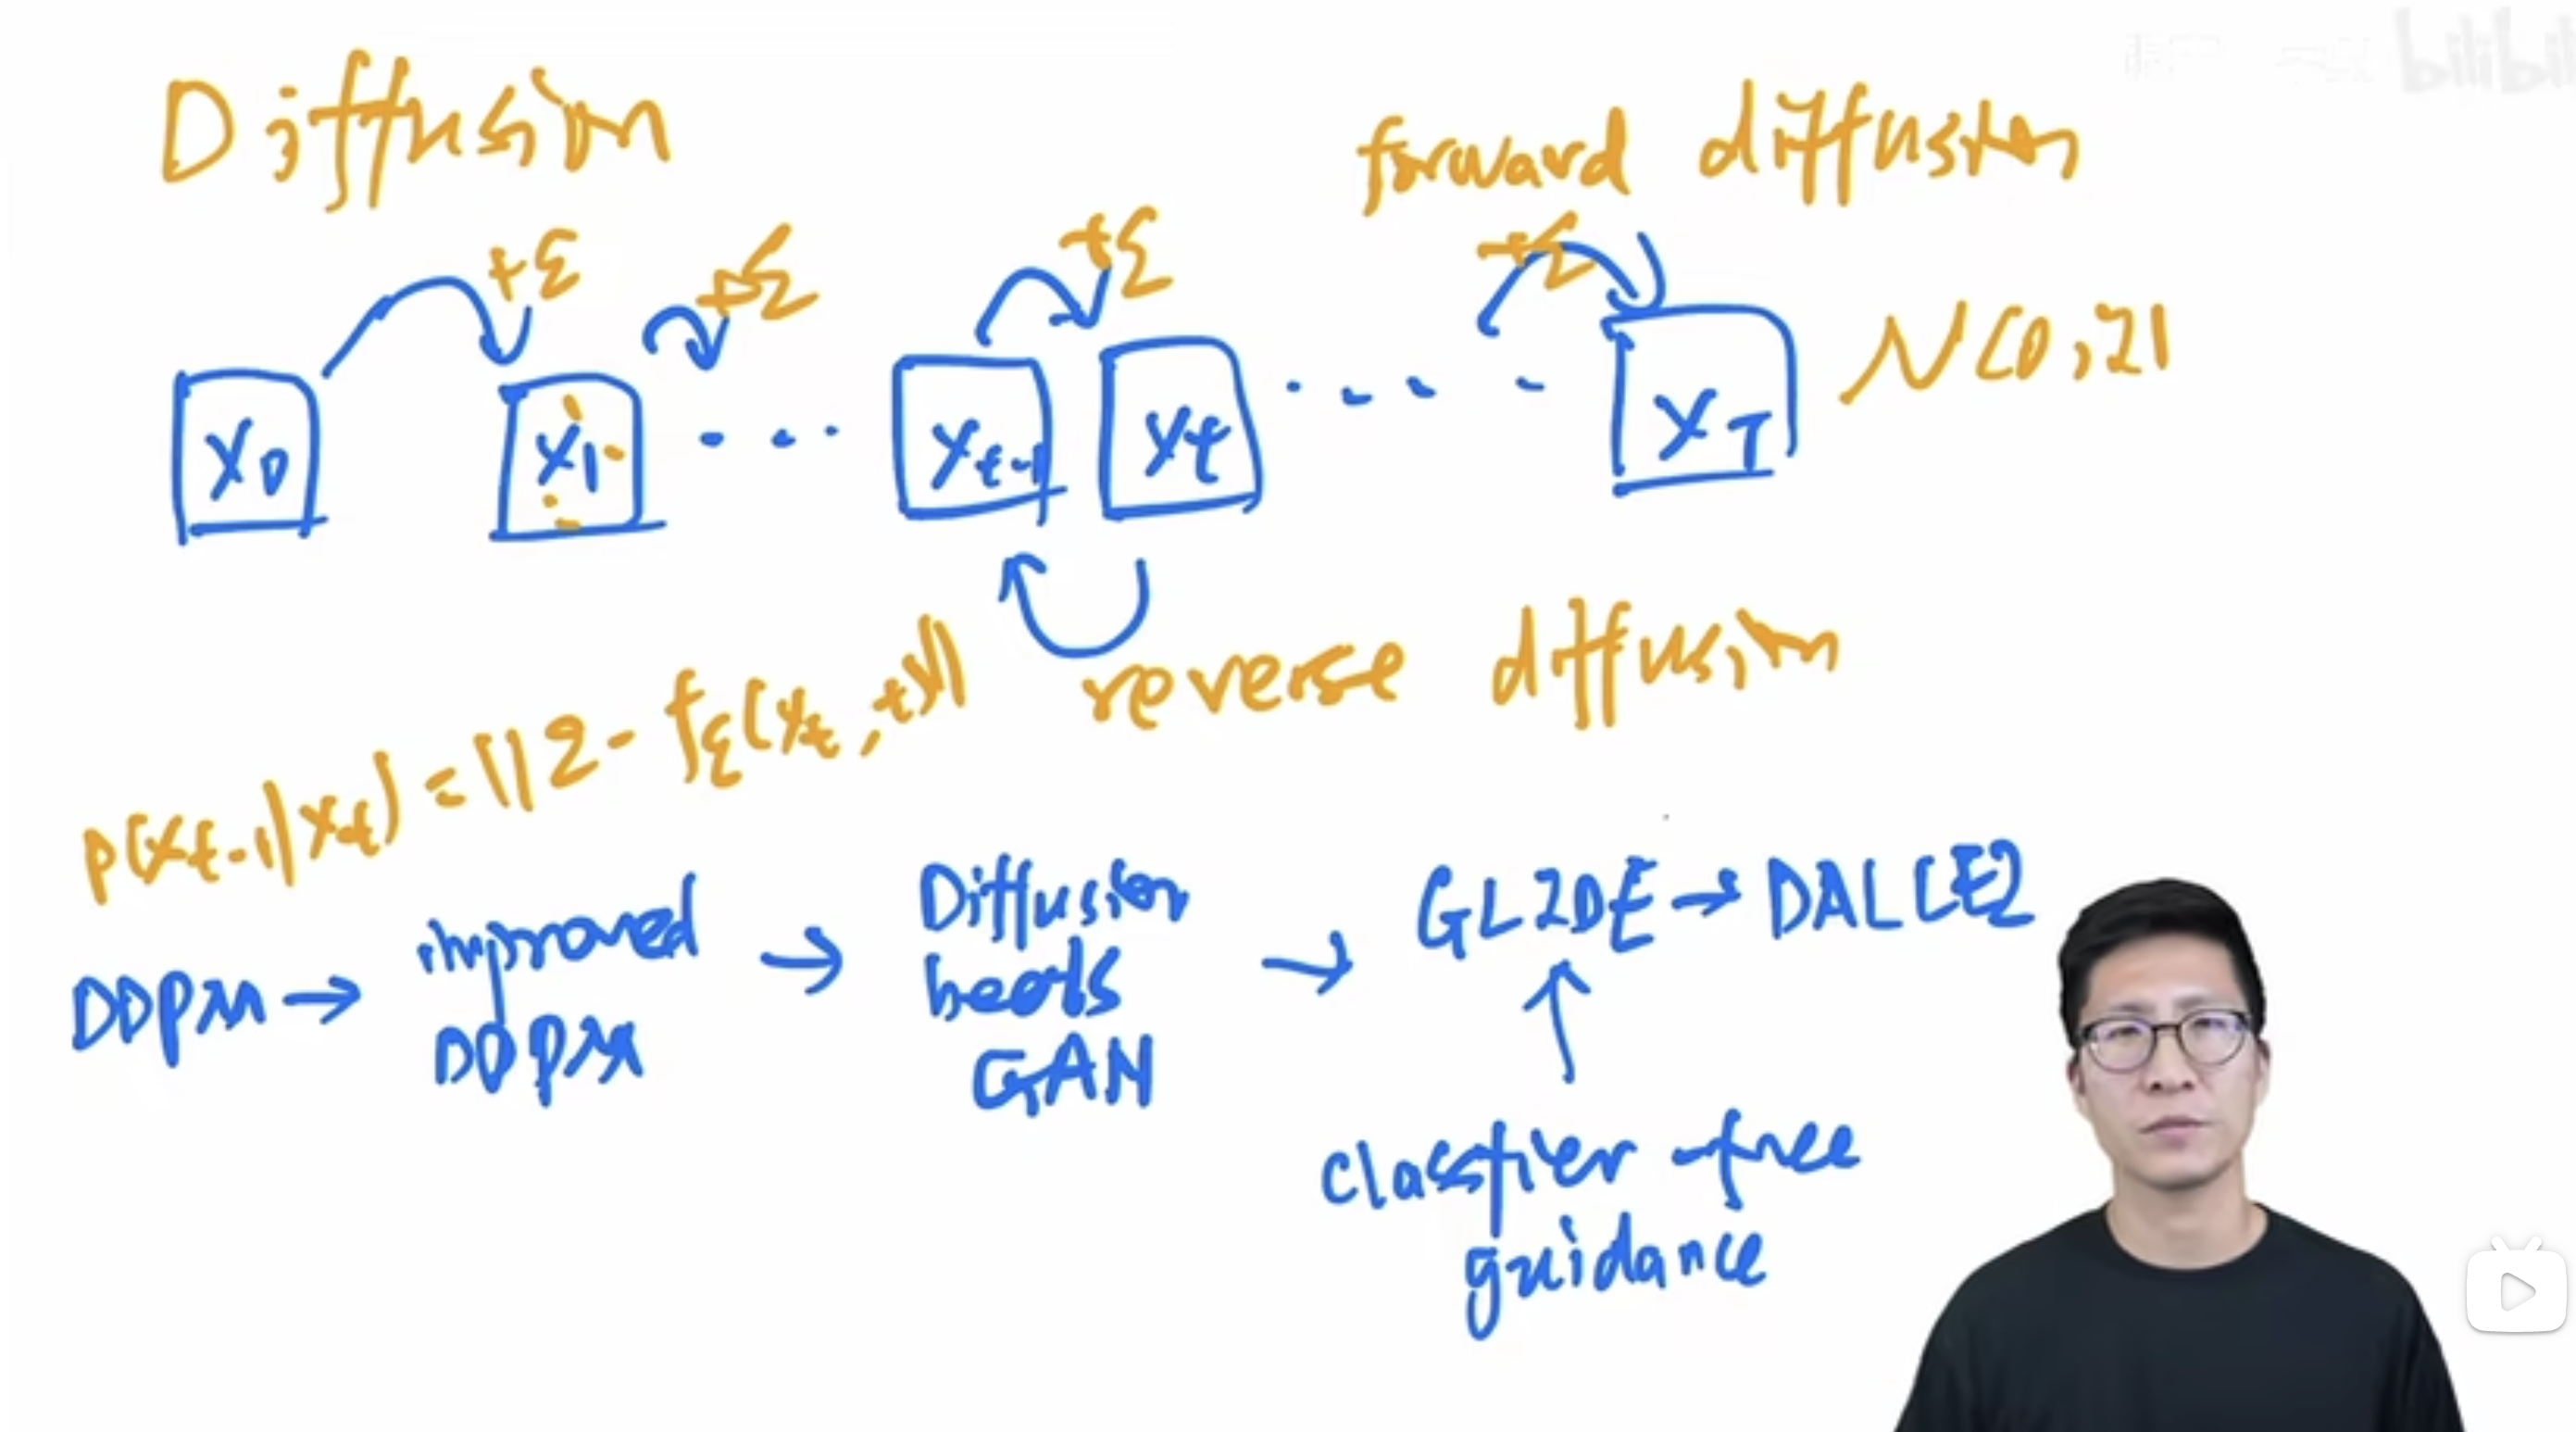 Diffusion
forward diffusion
+ε
+ε
+ε
+ε
X0
X1
...
Xt-1
Xt
....
XT
N(0,I)
reverse diffusion
P(Xt-1|Xt) = ||ε - fε(Xt,t)||
DDPM → improved DDPM → Diffusion beats GAN → GLIDE → DALLE2
↑
classfier-free
guidance
bilibili